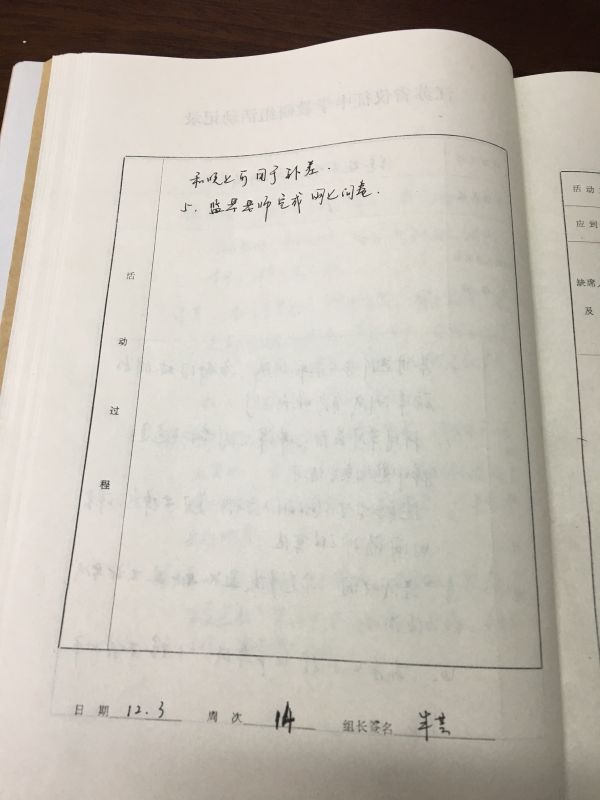 和晚上可用于补差.
5. 监考老师完成网上问卷.
活动过程
日期 12.3 周次 14 组长签名
活动
应到
缺席人
及